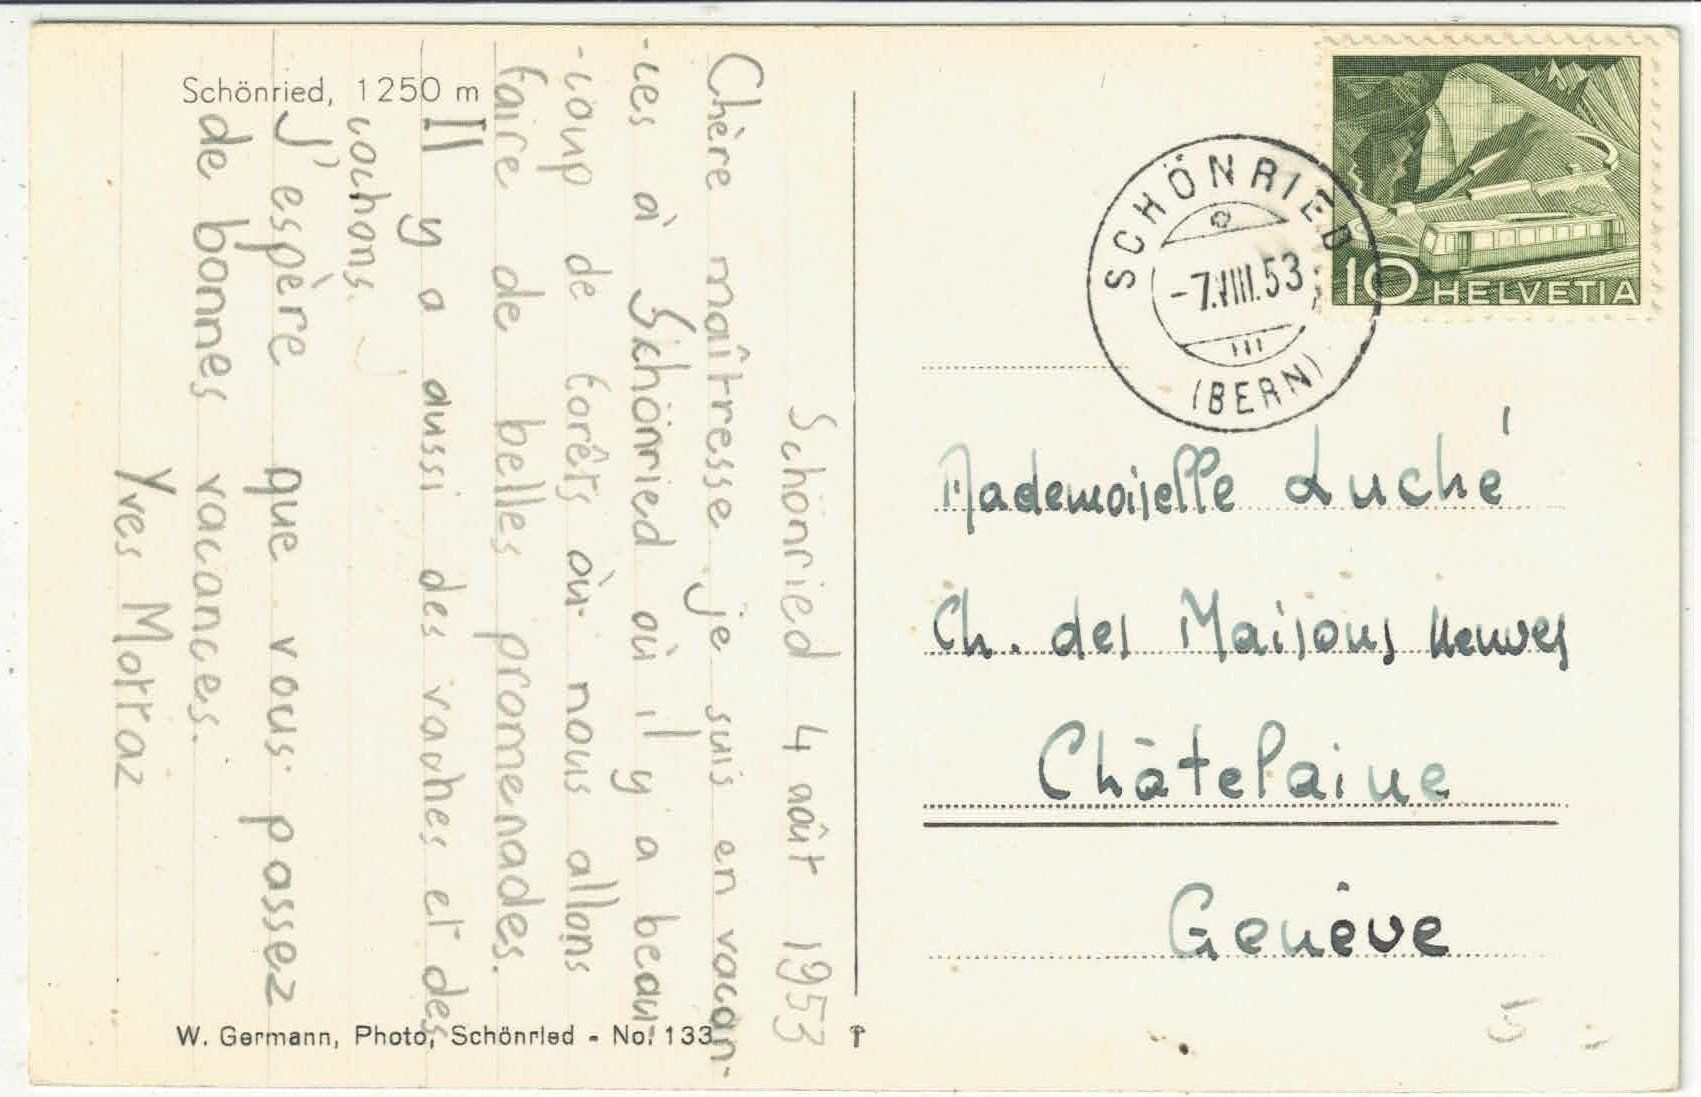 Schönried, 1250 m
Schönried 4 août 1953
Chère maîtresse je suis en vacan-
-ces à Schönried où il y a beau
-coup de forêts où nous allons
faire de belles promenades.
Il y a aussi des vaches et des
cochons.
J'espère que vous passez
de bonnes vacances.
Yves Mottaz
W. Germann, Photo, Schönried - No. 133
SCHÖNRIED
-7.VIII.53
(BERN)
10 HELVETIA
Mademoiselle Luché
Ch. des Maisons Neuves
Châtelaine
Genève
5.-